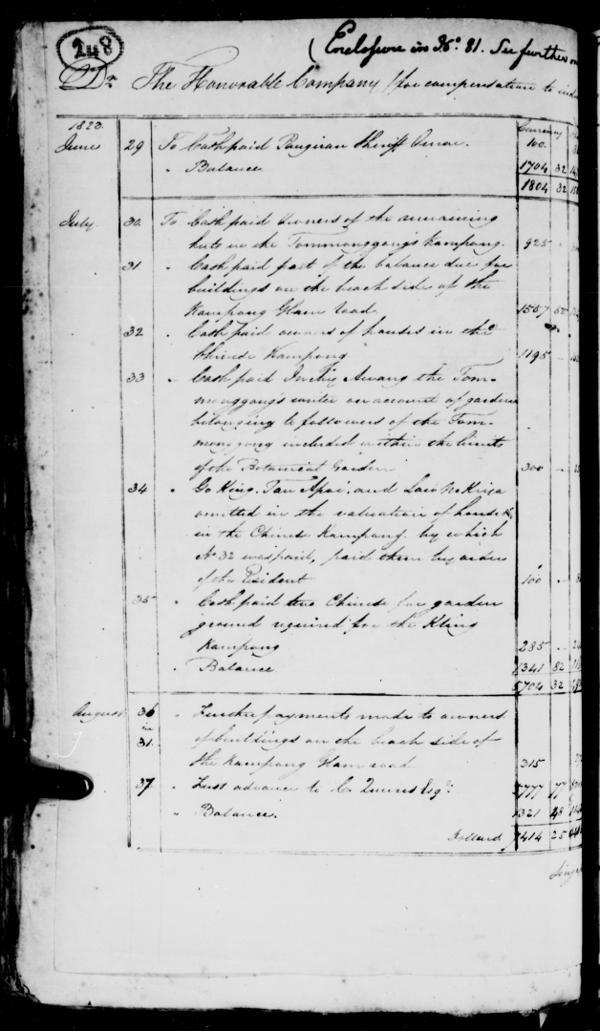 248
(Enclosure in No. 81. See further on
Dr. The Honorable Company (for compensation to
1823 Currency
June 29 To Cash paid Pangiran Sheriff Omar. 100.
" Balance 1704 32
1804 32
July 30 To Cash paid Owners of the remaining
huts in the Tommonggong's Kampong. 925 -
31 " Cash paid part of the balance due for
buildings on the beach side of the
Kampong Glam road. 1557 50
32 " Cash paid owners of houses in the
Chinese Kampong 1195 -
33 " Cash paid Inchy Awang the Tom-
monggong's writer on account of gardens
belonging to followers of the Tom-
mongong included within the limits
of the Botanical Garden 300 -
34 " Go King, Tan Apai, and
omitted in the valuation of houses &c
in the Chinese Kampong. by which
No 32 was paid, paid them by order
of the Resident 100 -
35 " Cash paid two Chinese for garden
ground required for the Kling
Kampong 285 -
" Balance 1341 82
5704 32
August 36 " Further payments made to owners
in
31. of buildings on the beach side of
the Kampong Glam road 315
37 " First advance to C. Queiros Esqr. 5777 77
" Balance. 1321 48
7414 25